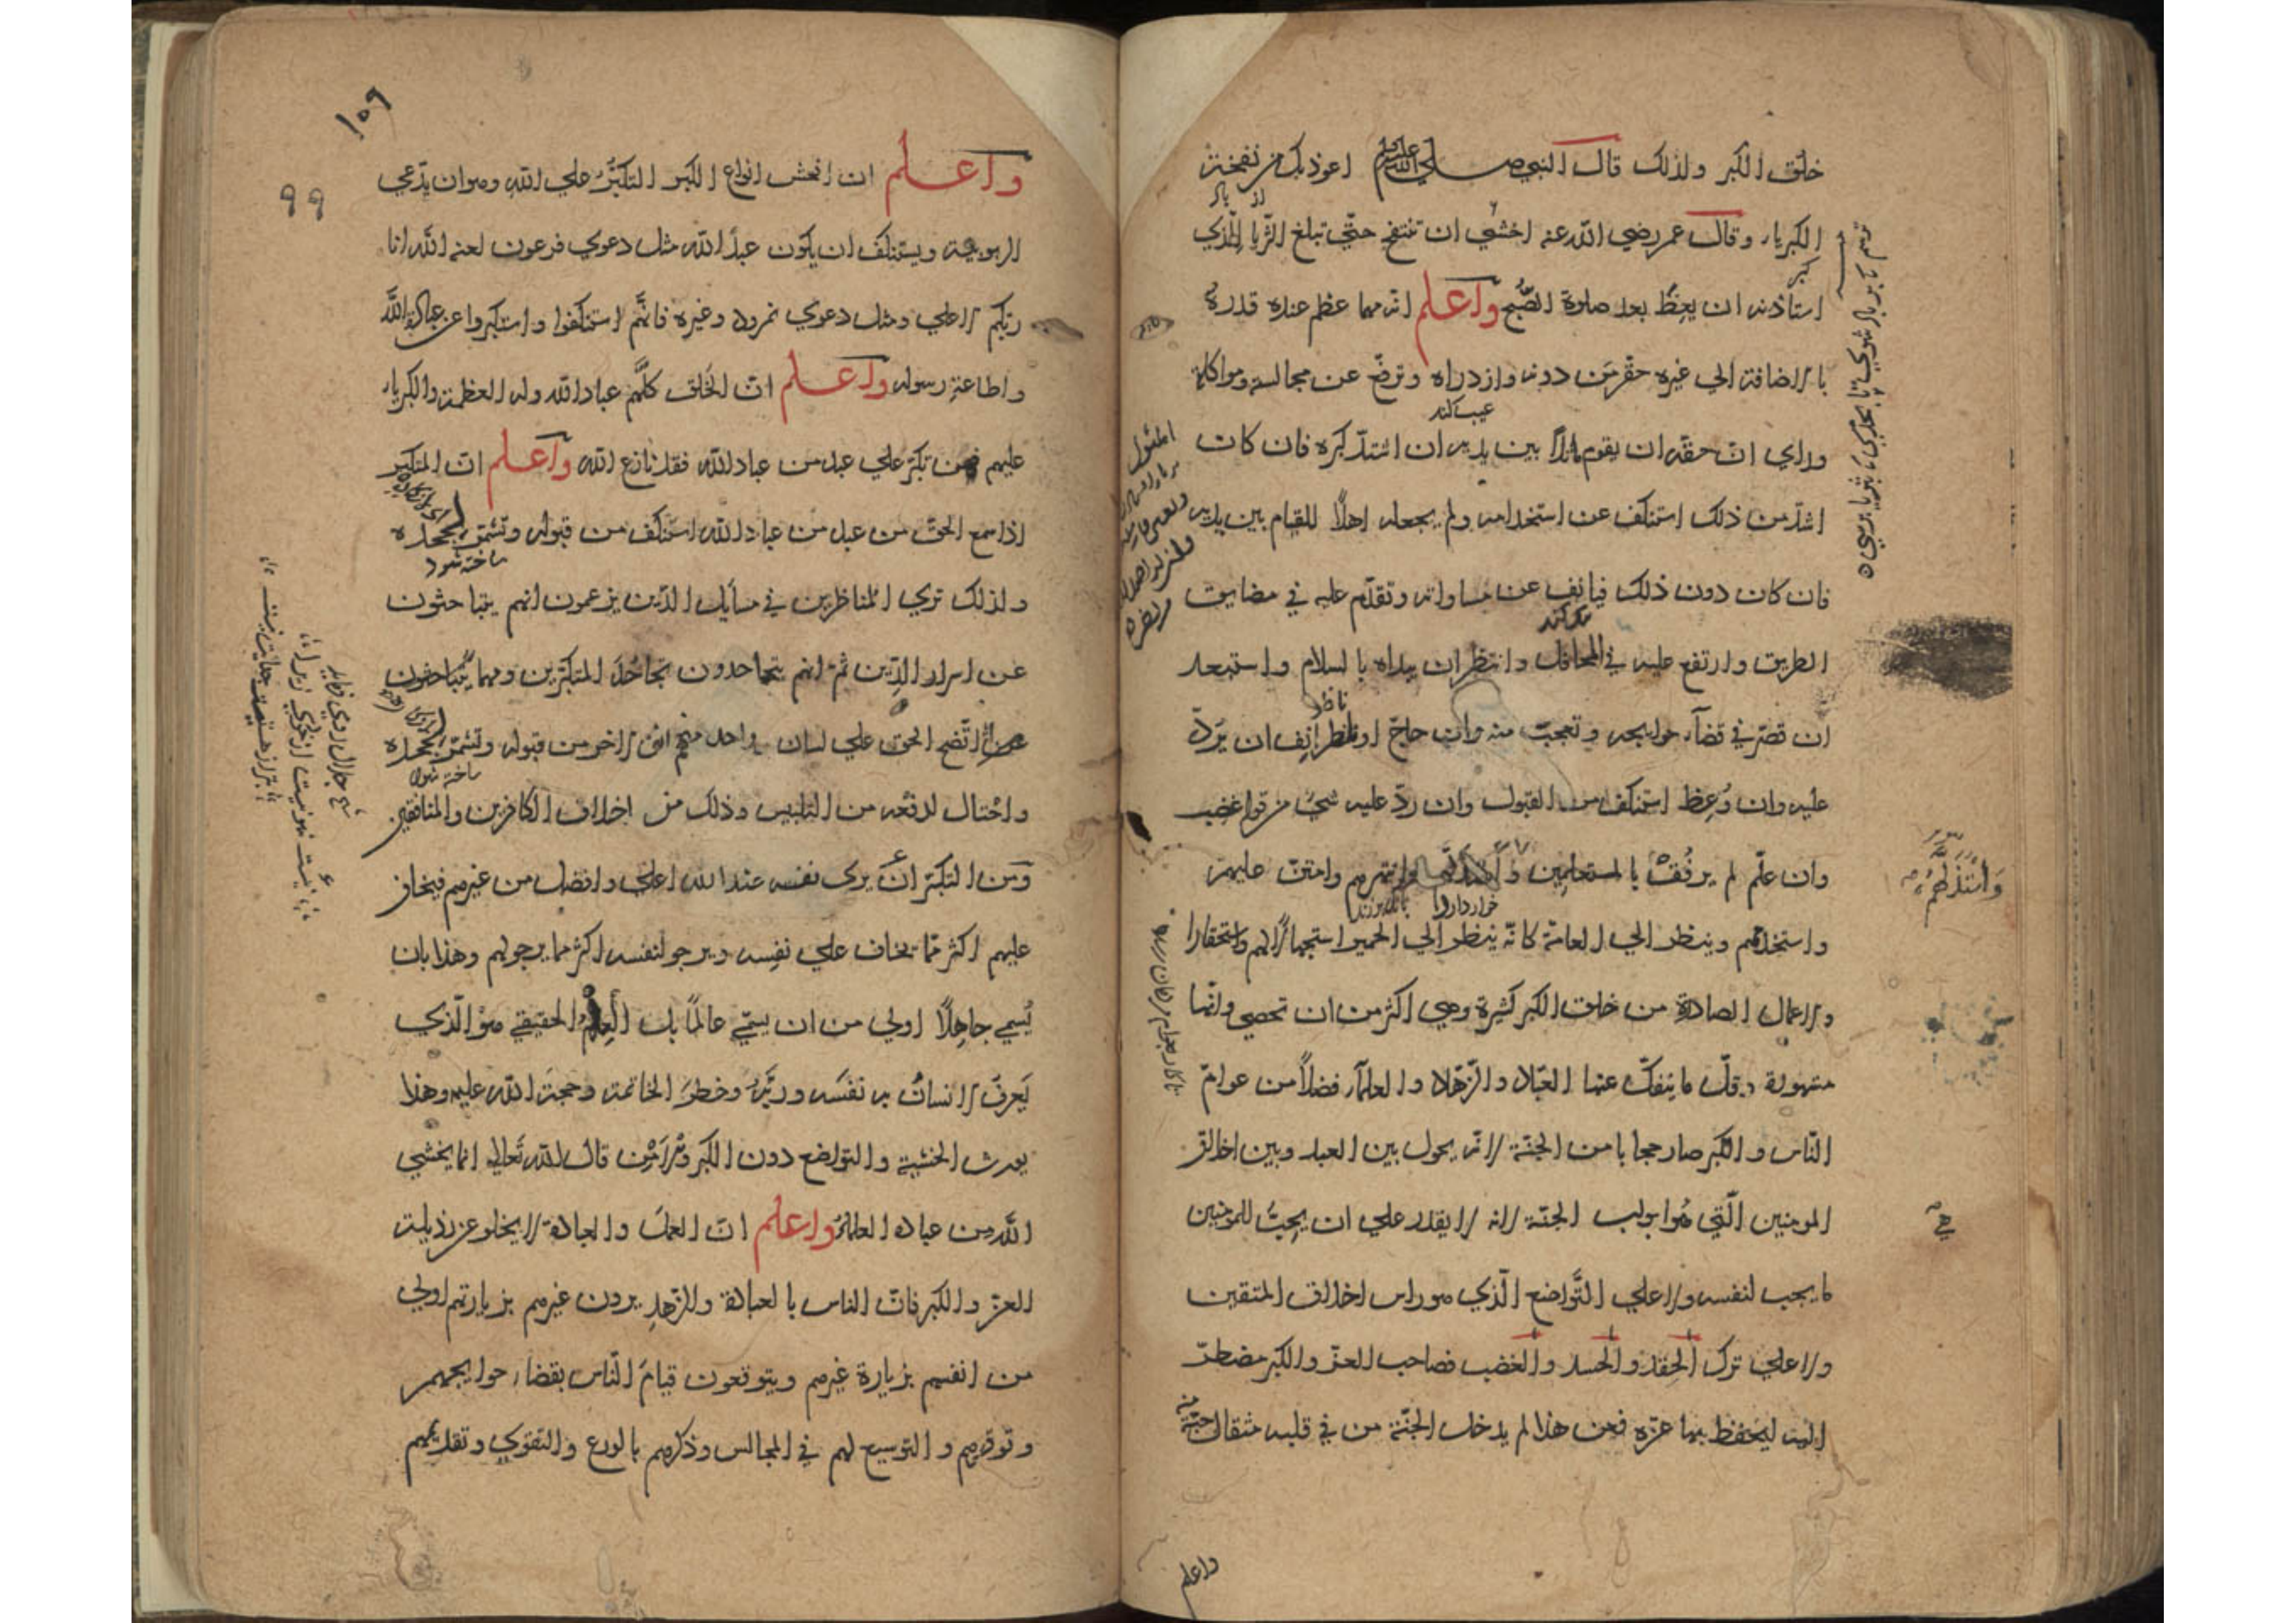 خلق الكبر ولذلك قال النبي صلي الله عليه وسلم اعوذ بك من نفخة
الكبرياء وقال عمر رضي الله عنه اخشي ان تنتفخ حتّي تبلغ الثّريا للّذي
استاذنه ان يعظ بعد صلوة الصّبح واعلم انّه مهما عظم عنده قدره
بالاضافة الي غيره حقّر مَن دونه وازدراه وترفّع عن مجالسته ومواكلته
عيب كند
وراي انّ حقّه ان يقوم ماثلاً بين يديه ان اشتدّ كبره فان كان
اشدّ من ذلك استنكف عن استخدامه ولم يجعله اهلاً للقيام بين يديه
فان كان دون ذلك فيانف عن مساواته وتقدّم عليه في مضايق
الطريق وارتفع عليه في المحافل وانتظر ان يبداه بالسلام واستبعد
ان قصّر في قضآء حوايجه وتعجّب منه وان حاجّ او ناظر انف ان يَردّ
عليه وان وُعِظ استنكف من القبول وان ردّ عليه شئ من قوله غضب
وان علّم لم يرفُقْ بالمستعلمين وانتهرهم وامتنّ عليهم
واستخدمهم وينظر الي العامة كانّه ينظر الي الحمير استجهالًا لهم واستحقارا
والاعمال الصادرة من خلق الكبر كثيرة وهي اكثر من ان تحصي وانّها
مشهورة وقلّ ما ينفكّ عنها العبّاد والزّهاد والعلمآء فضلاً من عوامّ
النّاس والكبر صار حجابا من الجنّة لانّه يحول بين العبد وبين اخلاق
المومنين الّتي هُو ابواب الجنّة لانه لا يقدر علي ان يحِبّ للمومنين
ما يحب لنفسه ولا علي التّواضع الّذي هو راس اخلاق المتقين
ولا علي ترك الحِقد والحسد والغضب فصاحب العزّ والكبر مضطرّ
اليه ليحفظ بها عزّه فمن هذا لم يدخل الجنّة من في قلبه مثقال حبّة
وَاسْتَذَلَّهُمْ
هي
واعلم
١٠٩
٩٩
واعلم ان افحش انواع الكبر التكبّر علي الله وهو ان يدّعي
الربوبية ويستنكف ان يكون عبدًا لله مثل دعوي فرعون لعنه الله انا
ربّكم الاعلي ومثل دعوي نمرود وغيره فانّهم استنكفوا واستكبروا عن عبادة اللّه
واطاعةِ رسوله واعلم انّ الخَلق كلّهم عباد الله وله العظمة والكبرياء
عليهم فمن تكبّر علي عبد من عباد الله فقد نازع الله واعلم انّ المتكبر
اذا سمع الحقّ من عبد من عباد الله استنكف من قبوله وتشمّر لجحده
ساخته شود
ولذلك تري المناظرين في مسايل الدّين يزعمون انهم يتباحثون
عن اسرار الدّين ثمّ انهم يتجاحدون تجاحُدَ المتكبّرين ومهما يتباحثون
اتّضح الحق علي لسان واحد منهم انف الاخر من قبوله وتشمّر لجحده
ساخته شود
واحتال لدفعه من التلبيس وذلك من اخلاق الكافرين والمنافقين
وَمن التكبّر اَنْ يري نفسه عند الله اعلي وافضل من غيرهم فيخاف
عليهم اكثر ممّا يخاف علي نفسِه ويرجو لنفسه اكثر ممّا يرجو لهم وهذا بان
يُسمي جاهِلًا اولي من ان يسمّي عالمًا بل العِلْمُ الحقيقي هوَ الّذي
يَعرِف الانسانُ به نفسَه وربَّهُ وخطرَ الخاتمة وحجّة اللّه عليه وهذا
يورث الخشية والتواضع دون الكبر وَالامْن قال اللّه تَعالي انما يخشي
اللّه من عباده العلماؤُ واعلم انّ العلمَ والعبادة لا يخلو عن رذيلة
العزّ والكبر فانّ الناس بالعبادة والزّهدِ يرون غيرهم بزيارتهم اولي
من انفسهم بزيارة غيرهم ويتوقعون قيامَ النّاس بقضاء حوايجهم
وتوقيرهم والتوسيع لهم في المجالس وذكرهم بالورع والتقوي وتقديمهم